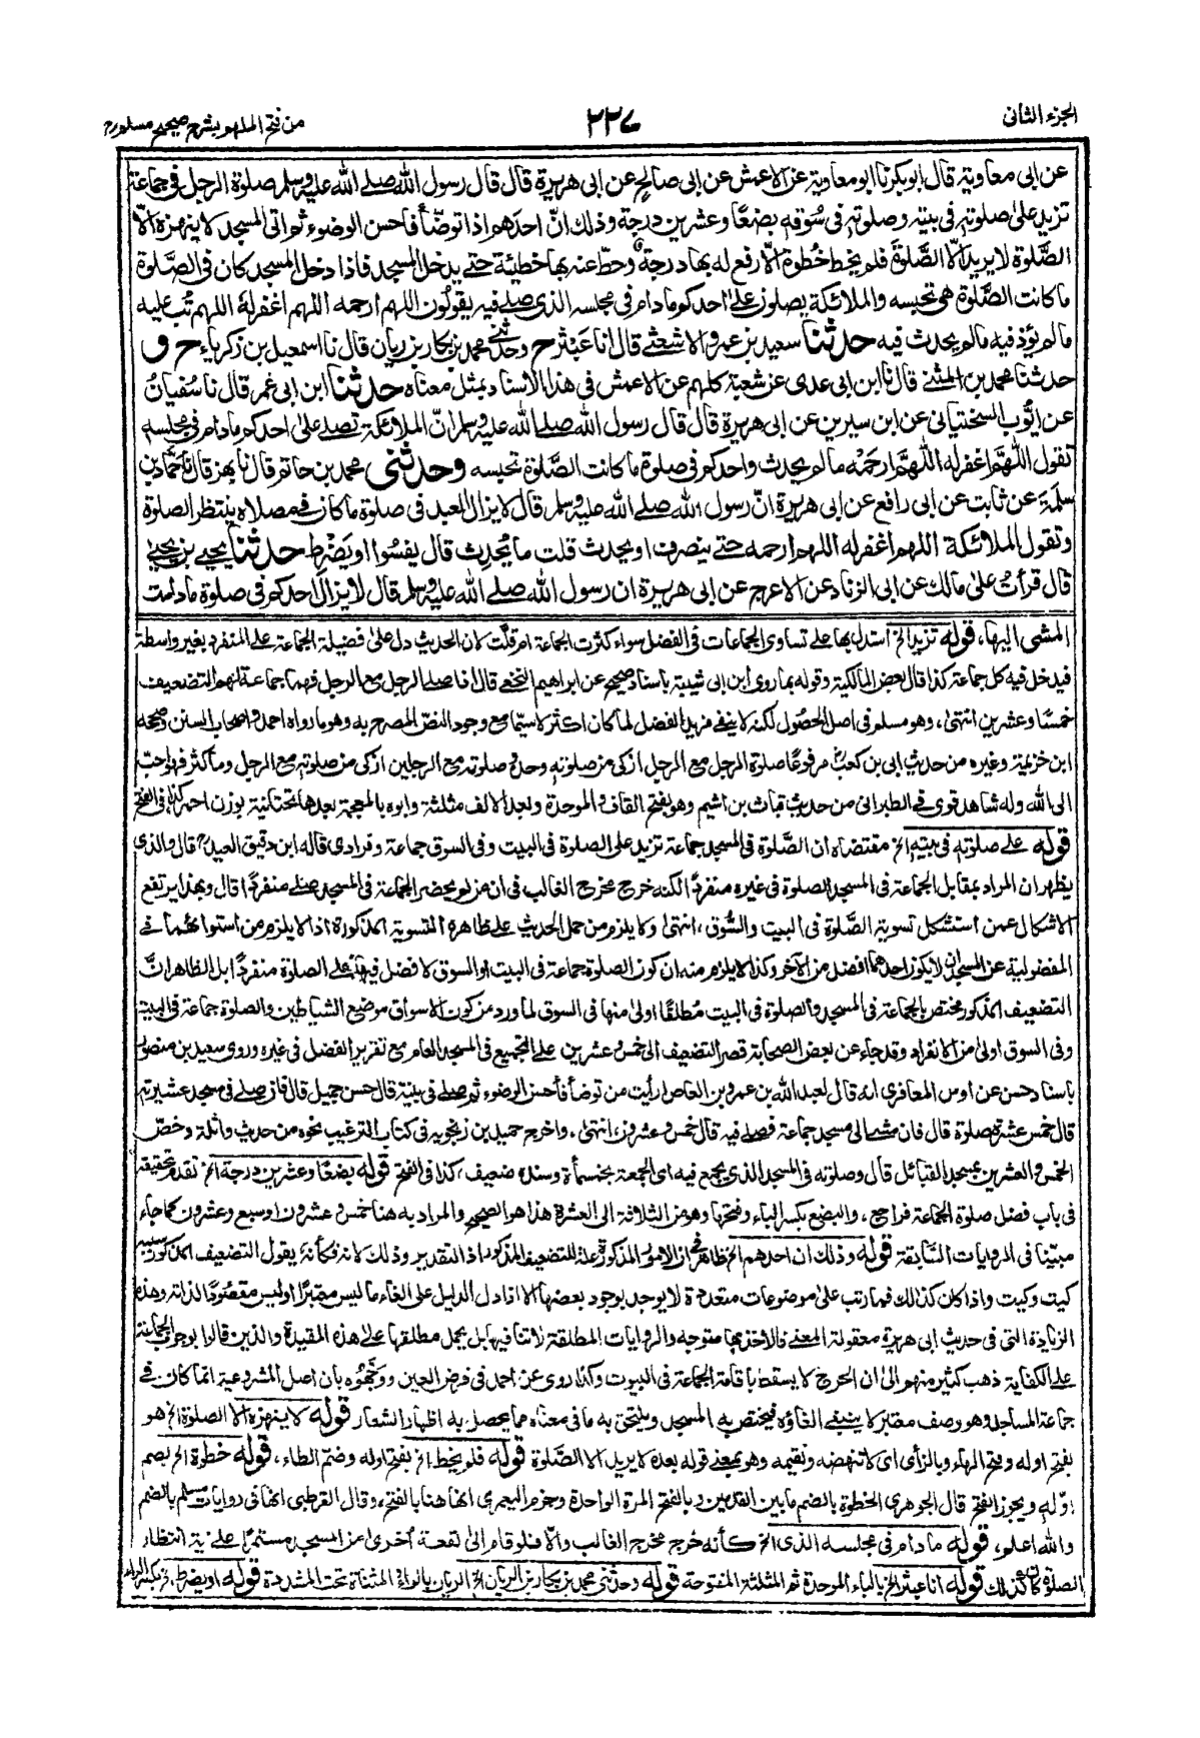 الجزء الثانى
٢٢٧
من فتح الملهم بشرح صحيح مسلم
عن ابى معاوية قال ابوبكر نا ابو معاوية عن الاعمش عن ابى صالح عن ابى هريرة قال قال رسول الله صلى الله عليه وسلم صلوة الرجل فى جماعة
تزيد على صلوته فى بيته وصلوته فى سُوقه بضعًا وعشرين درجة وذلك انّ احدهم اذا توضّأ فاحسن الوضوء ثم اتى المسجد لا ينهزه الّا
الصَّلوة لا يريد الّا الصَّلوةَ فلم يخط خُطوة الّا رفع له بها درجة وحطّ عنه بها خطيئة حتى يدخل المسجد فاذا دخل المسجد كان فى الصَّلوة
ما كانت الصَّلوة هى تحبسه والملائكة يصلون على احدكم ما دام فى مجلسه الذى صلى فيه يقولون اللهم ارحمه اللهم اغفر له اللهم تُب عليه
ما لم يؤذ فيه ما لم يحدث فيه حدثنا سعيد بن عمرو الاشعثى قال انا عَبْثر ح وحدثنى محمد بن بكار بن ريان قال نا اسمعيل بن زكرياء ح و
حدثنا محمد بن المثنى قال نا ابن ابى عدى عن شعبة كلهم عن الاعمش فى هذا الاسناد بمثل معناه حدثنا ابن ابى عمر قال نا سُفيانُ
عن ايُّوب السختيانى عن ابن سيرين عن ابى هريرة قال قال رسول الله صلى الله عليه وسلم انّ الملائكة تصلى على احدكم ما دام فى مجلسه
تقول اللهمّ اغفر له اللهمّ ارحَمْه ما لم يحدث واحدكم فى صلوة ما كانت الصَّلوة تحبسه وحدثنى محمد بن حاتم قال نا بهز قال نا حمّاد بن
سلمة عن ثابت عن ابى رافع عن ابى هريرة انّ رسول الله صلى الله عليه وسلم قال لا يزال العبد فى صلوة ما كان فى مصلاه ينتظر الصلوة
وتقول الملائكة اللهم اغفر له اللهم ارحمه حتى ينصرف او يحدث قلت ما يُحدِث قال يفسُوا او يَضْرِط حدثنا يحيى بن يحيى
قال قرأت على مالك عن ابى الزناد عن الاعرج عن ابى هريرة ان رسول الله صلى الله عليه وسلم قال لا يزال احدكم فى صلوة ما دامت
المشى اليها، قوله تزيد الخ استدل بها على تساوى الجماعات فى الفضل سواء كثرت الجماعة ام قلّت لان الحديث دل على فضيلة الجماعة على المنفرد بغير واسطة
فيدخل فيه كل جماعة كذا قال بعض المالكية وقوله بما روى ابن ابى شيبة باسناد صحيح عن ابراهيم النخعى قال اذا صلى الرجل مع الرجل فهما جماعة لهم التضعيف
خمسًا وعشرين انتهى، وهو مسلم فى اصل الحصُول لكنه لا ينفى مزيد الفضل لما كان اكثر لا سيّما مع وجود النصّ المصرح به وهو ما رواه احمد واصحاب السنن وصححه
ابن خزيمة وغيره من حديث ابى بن كعب مرفوعًا صلوة الرجل مع الرجل ازكى من صلوته وحده وصلوته مع الرجلين ازكى من صلوته مع الرجل وما كثر فهو احبّ
الى الله وله شاهد قوى فى الطبرانى من حديث قباث بن اشيم وهو بفتح القاف والموحدة وبعد الالف مثلثة وابوه بالمعجمة بعدها تحتانية بوزن احمر كذا فى الفتح
قوله على صلوته فى بيته الخ مقتضاه ان الصَّلوة فى المسجد جماعة تزيد على الصلوة فى البيت وفى السوق جماعة وفرادى قاله ابن دقيق العيد قال والذى
يظهر ان المراد بمقابل الجماعة فى المسجد الصلوة فى غيره منفردًا لكنه خرج مخرج الغالب فى ان من لم يحضر الجماعة فى المسجد صلى منفردًا قال وبهذا يرتفع
الاشكال عمن استشكل تسوية الصَّلوة فى البيت والسُّوق، انتهى ولا يلزم من حمل الحديث على ظاهره التسوية المذكورة اذ لا يلزم من استوائهما فى
المفضولية عن المسجد ان لا يكون احدهما افضل من الآخر وكذا لا يلزم منه ان كون الصلوة جماعة فى البيت او السوق لا فضل فيها على الصلوة منفردًا بل الظاهر انَّ
التضعيف المذكور مختص بالجماعة فى المسجد والصلوة فى البيت مُطلقًا اولى منها فى السوق لما ورد من كون الاسواق موضع الشياطين والصلوة جماعة فى البيت
وفى السوق اولى من الانفراد وقد جاء عن بعض الصحابة قصر التضعيف الى خمس وعشرين على التجميع فى المسجد العام مع تقرير الفضل فى غيره وروى سعيد بن منصور
باسناد حسن عن اوس المعافرى انه قال لعبد الله بن عمرو بن العاص ارأيت من توضأ فأحسن الوضوء ثم صلى فى بيته قال حسن جميل قال فان صلى فى مسجد عشيرته
قال خمس عشرة صلوة قال فان مشى الى مسجد جماعة فصلى فيه قال خمس وعشرون، انتهى، واخرج حميد بن زنجويه فى كتاب الترغيب نحوه من حديث واثلة وخصّ
الخمس والعشرين بمسجد القبائل قال وصلوته فى المسجد الذى يجمع فيه اى الجمعة بخمسمأة وسنده ضعيف، كذا فى الفتح قوله بضعًا وعشرين درجة الخ تقدم تحقيقه
فى باب فضل صلوة الجماعة فراجع، والبضع بكسر الباء وفتحها وهو من الثلاثة الى العشرة هذا هو الصحيح والمراد به هنا خمس وعشرون او سبع وعشرون كما جاء
مبيّنا فى الروايات السّابقة قوله وذلك ان احدهم الخ ظاهر فى ان الامور المذكورة علة للتضعيف المذكور اذ التقدير وذلك لانه فكأنه يقول التضعيف المذكور سببه
كيت وكيت واذا كان كذلك فما رتب على موضوعات متعددة لا يوجد بوجود بعضها الا اذا دل الدليل على الغاء ما ليس معتبرًا او ليس مقصُودًا لذاته وهذه
الزيادة التى فى حديث ابى هريرة معقولة المعنى فالاخذ بها متوجه والروايات المطلقة لا تنافيها بل يحمل مطلقها على هذه المقيدة والذين قالوا بوجوب الجماعة
على الكفاية ذهب كثير منهم الى ان الحرج لا يسقط باقامة الجماعة فى البيوت وكذا روى عن احمد فى فرض العين ووجّهُوه بان اصل المشروعية انّما كان فى
جماعة المساجد وهو وصف معتبر لا ينبغى الغاؤه فيختص به المسجد ويلتحق به ما فى معناه مما يحصل به اظهار الشعار قوله لا ينهزه الا الصلوة الخ هو
بفتح اوله وفتح الهاء وبالزاى اى لا تنهضه وتقيمه وهو بمعنى قوله بعده لا يريد الا الصَّلوة قوله فلم يخط الخ بفتح اوله وضم الطاء، قوله خطوة الخ بضم
اوّله ويجوز الفتح قال الجوهرى الخطوة بالضم ما بين القدمين وبالفتح المرة الواحدة وجزم اليعمرى انها هنا بالفتح، وقال القرطبى انها فى روايات مسلم بالضم
والله اعلم، قوله ما دام فى مجلسه الذى الخ كأنه خرج مخرج الغالب والّا فلو قام الى بقعة اُخرى من المسجد مستمرًا على نية انتظار
الصلوة كان كذلك قوله انا عبثر الخ بالباء الموحدة ثم المثلثة المفتوحة قوله وحدثنى محمد بن بكار بن الريان الخ الريان بالراء المثناة تحت المشددة قوله او يضرط الخ بكسر الراء